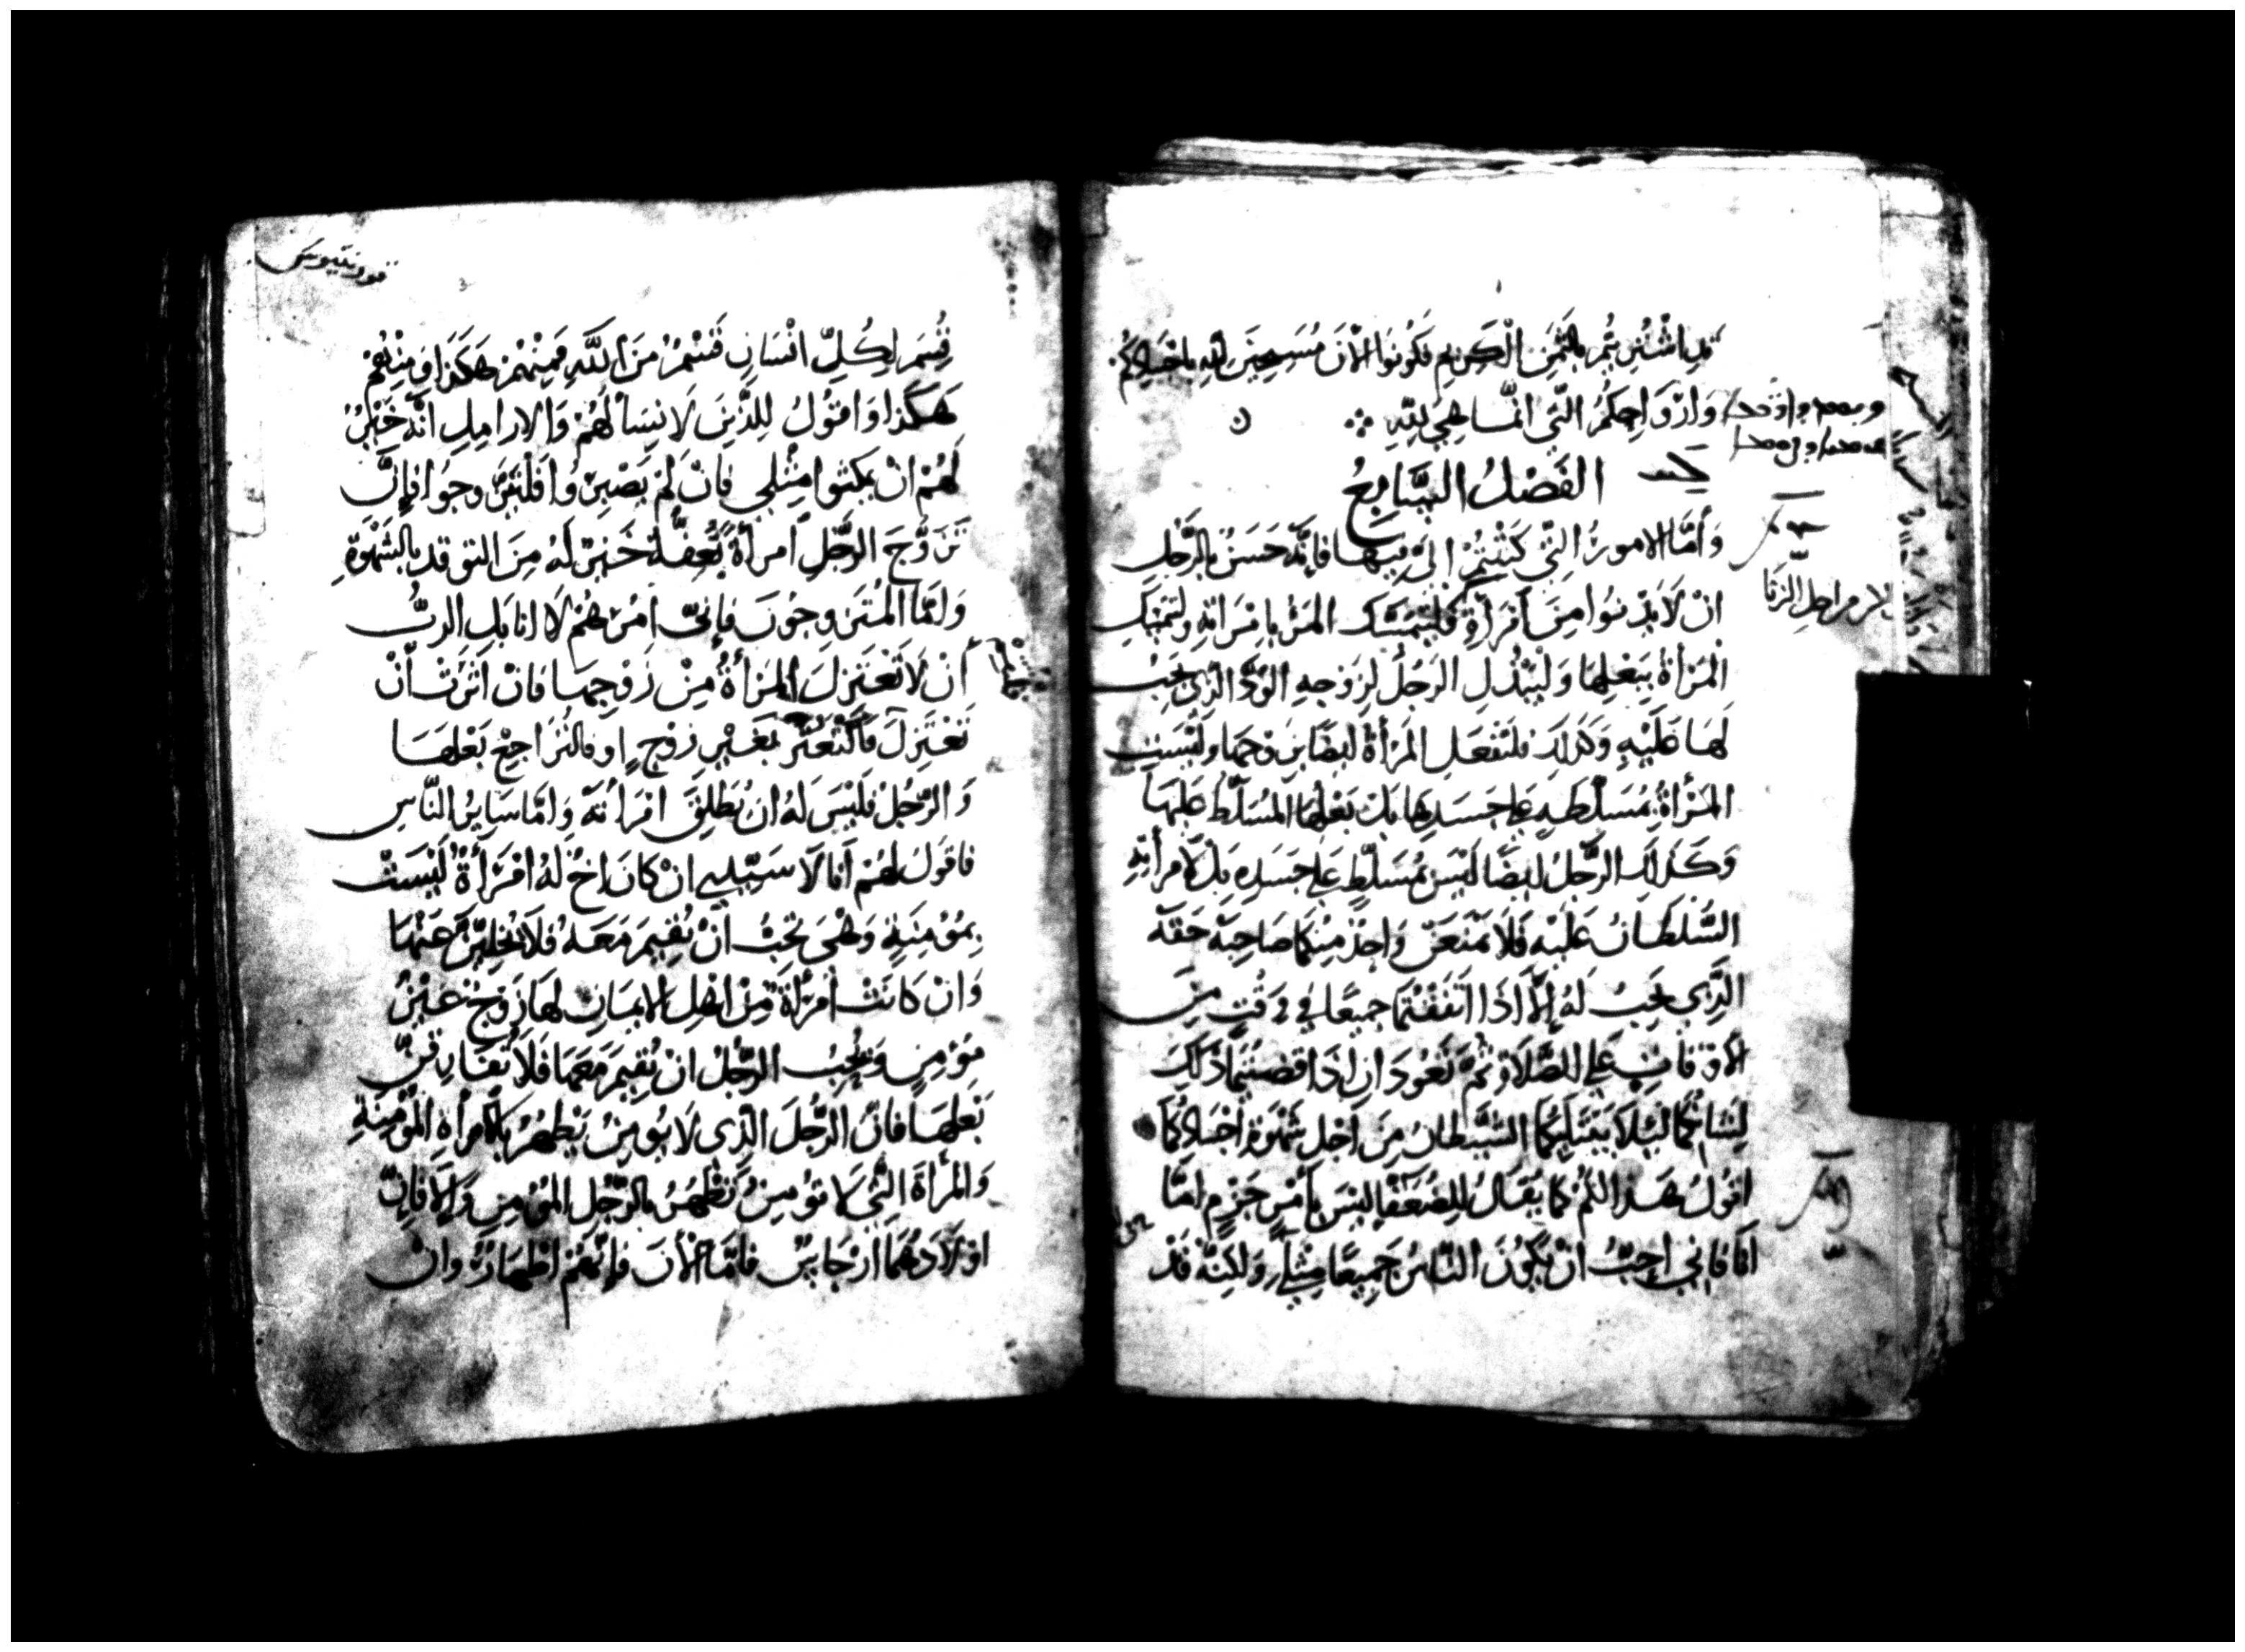 قد اشتريتم بالثمن الكريم فكونوا الان مسبحين لله باجسادكم
وارواحكم التي انما هي لله
الفصل السابع
وَأمَّا الامورُ التِّي كَتَبْتُمْ اليَّ فيها فانَّه حَسَنٌ بالرَّجُلِ
انْ لَا يدْنُوا مِنَ امْرَأةٍ فليتمسَّك المرْءُ بامْرَاتِهِ ولتتمسّك
المرْأةُ ببَعْلِهَا وَليَبْذُلِ الرَجُلُ لزَوْجِهِ الوُدَّ الذي يجبُ
لَهَا عَلَيْهِ وَكذلك فلتفعَل المرْأةُ ايضًا بزوجها وليْسَتِ
المرْأةُ بمُسَلَّطةٍ على جسَدِها بل بَعْلُها المُسَلَّطُ عليْهَا
وَكَذلك الرَّجُلُ ايضًا ليْسَ بمُسَلّطٍ على جسَدِه بل لامرأتِهِ
السُّلطَانُ عَلَيْه فَلَا يَمْنَعَنَّ وَاحِدٌ مِنْكما صَاحِبَهُ حَقّهُ
الذِي يجبُ لَهُ إلَّا اذَا اتّفَقْتُمَا جميعًا في وقتٍ مِنَ
الأوقاتِ على الصَّلَاةِ ثُمّ تعُودَانِ اذَا قضيتما ذلكَ
لشانكما ليلا يبتليكما الشيطانُ مِنَ اجْلِ شهْوَةِ اجسَادِكما
اقولُ هَذَا لكُمْ كما يُقالُ للضُعَفَا ليسَ بأمْرٍ جَزْمٍ امّا
انَا فاني احِبُّ انْ يكُونَ النّاسُ جَمِيعًا مِثْلي وَلكنّهُ قَدْ
قورنتيوس
قُسِمَ لكُلِّ انْسَانٍ قَسْمٌ مِنَ اللَّهِ فمِنْهُمْ هَكذَا وَمِنْهُمْ
هَكَذا وَاقولُ للذِينَ لَا نِسَا لَهُمْ وَالارامِلِ انَّهُ خَيْرٌ
لَهُمْ انْ يمكثوا مِثْلِي فانْ لَمْ يَصْبِرُوا فَلْيَتَزوجُوا فإنَّ
تزوُّجَ الرَّجُلِ امرأةً بعِفّةٍ خَيْرٌ لهُ مِنَ التوقد بالشهْوَةِ
وَامّا المُتَزوِجُونَ فإنّي امُرُهُمْ لا انا بَلِ الرَبُّ
انْ لا تعْتَزِلَ المَرْأةُ مِنْ زَوْجِهَا فانْ اثَرَتْ أنْ
تَعْتَزِلَ بغَيْرِ زوْجٍ او فالتُرَاجِعْ بَعْلَهَا
وَالرَّجُلُ فليْسَ لهُ ان يُطلِقَ امْرَأتَهُ وَامّا سَايرُ النَّاسِ
فاقولُ لهُمْ انا لا سَيّدي انْ كانَ اخٌ لهُ امْرَأةٌ ليْسَتْ
بمُؤمِنَةٍ وَهْيَ تحِبُّ انْ تُقيمَ مَعَهُ فلا يُخلِيَنَّ عَنْهَا
وَانْ كانَتْ امْرَأةٌ مِنْ اهْلِ الايمَانِ لهَا زَوْجٌ غيْرُ
مؤمِنٍ وَيُحِبُّ الرَّجُلُ انْ يُقيمَ مَعَهَا فَلا تُفَارِقَنَّ
بَعْلَهَا فانَّ الرَّجُلَ الذِي لَا يُومِنُ يَطْهُرُ بالامرأةِ المُؤْمِنَةِ
وَالمرْأةَ التي لا تؤمِنُ تَطْهُرُ بالرّجُلِ المُؤمِنِ وَإلا فانّ
اوْلَادَهُمَا ارْجَاسٌ فامّا الأنَ فإنّهُمْ اطْهَارٌ وانْ